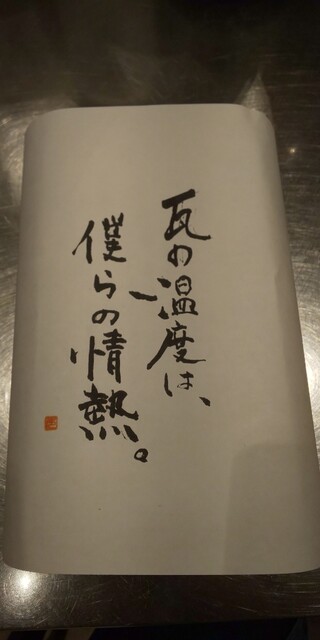 瓦の温度は、
僕らの情熱。